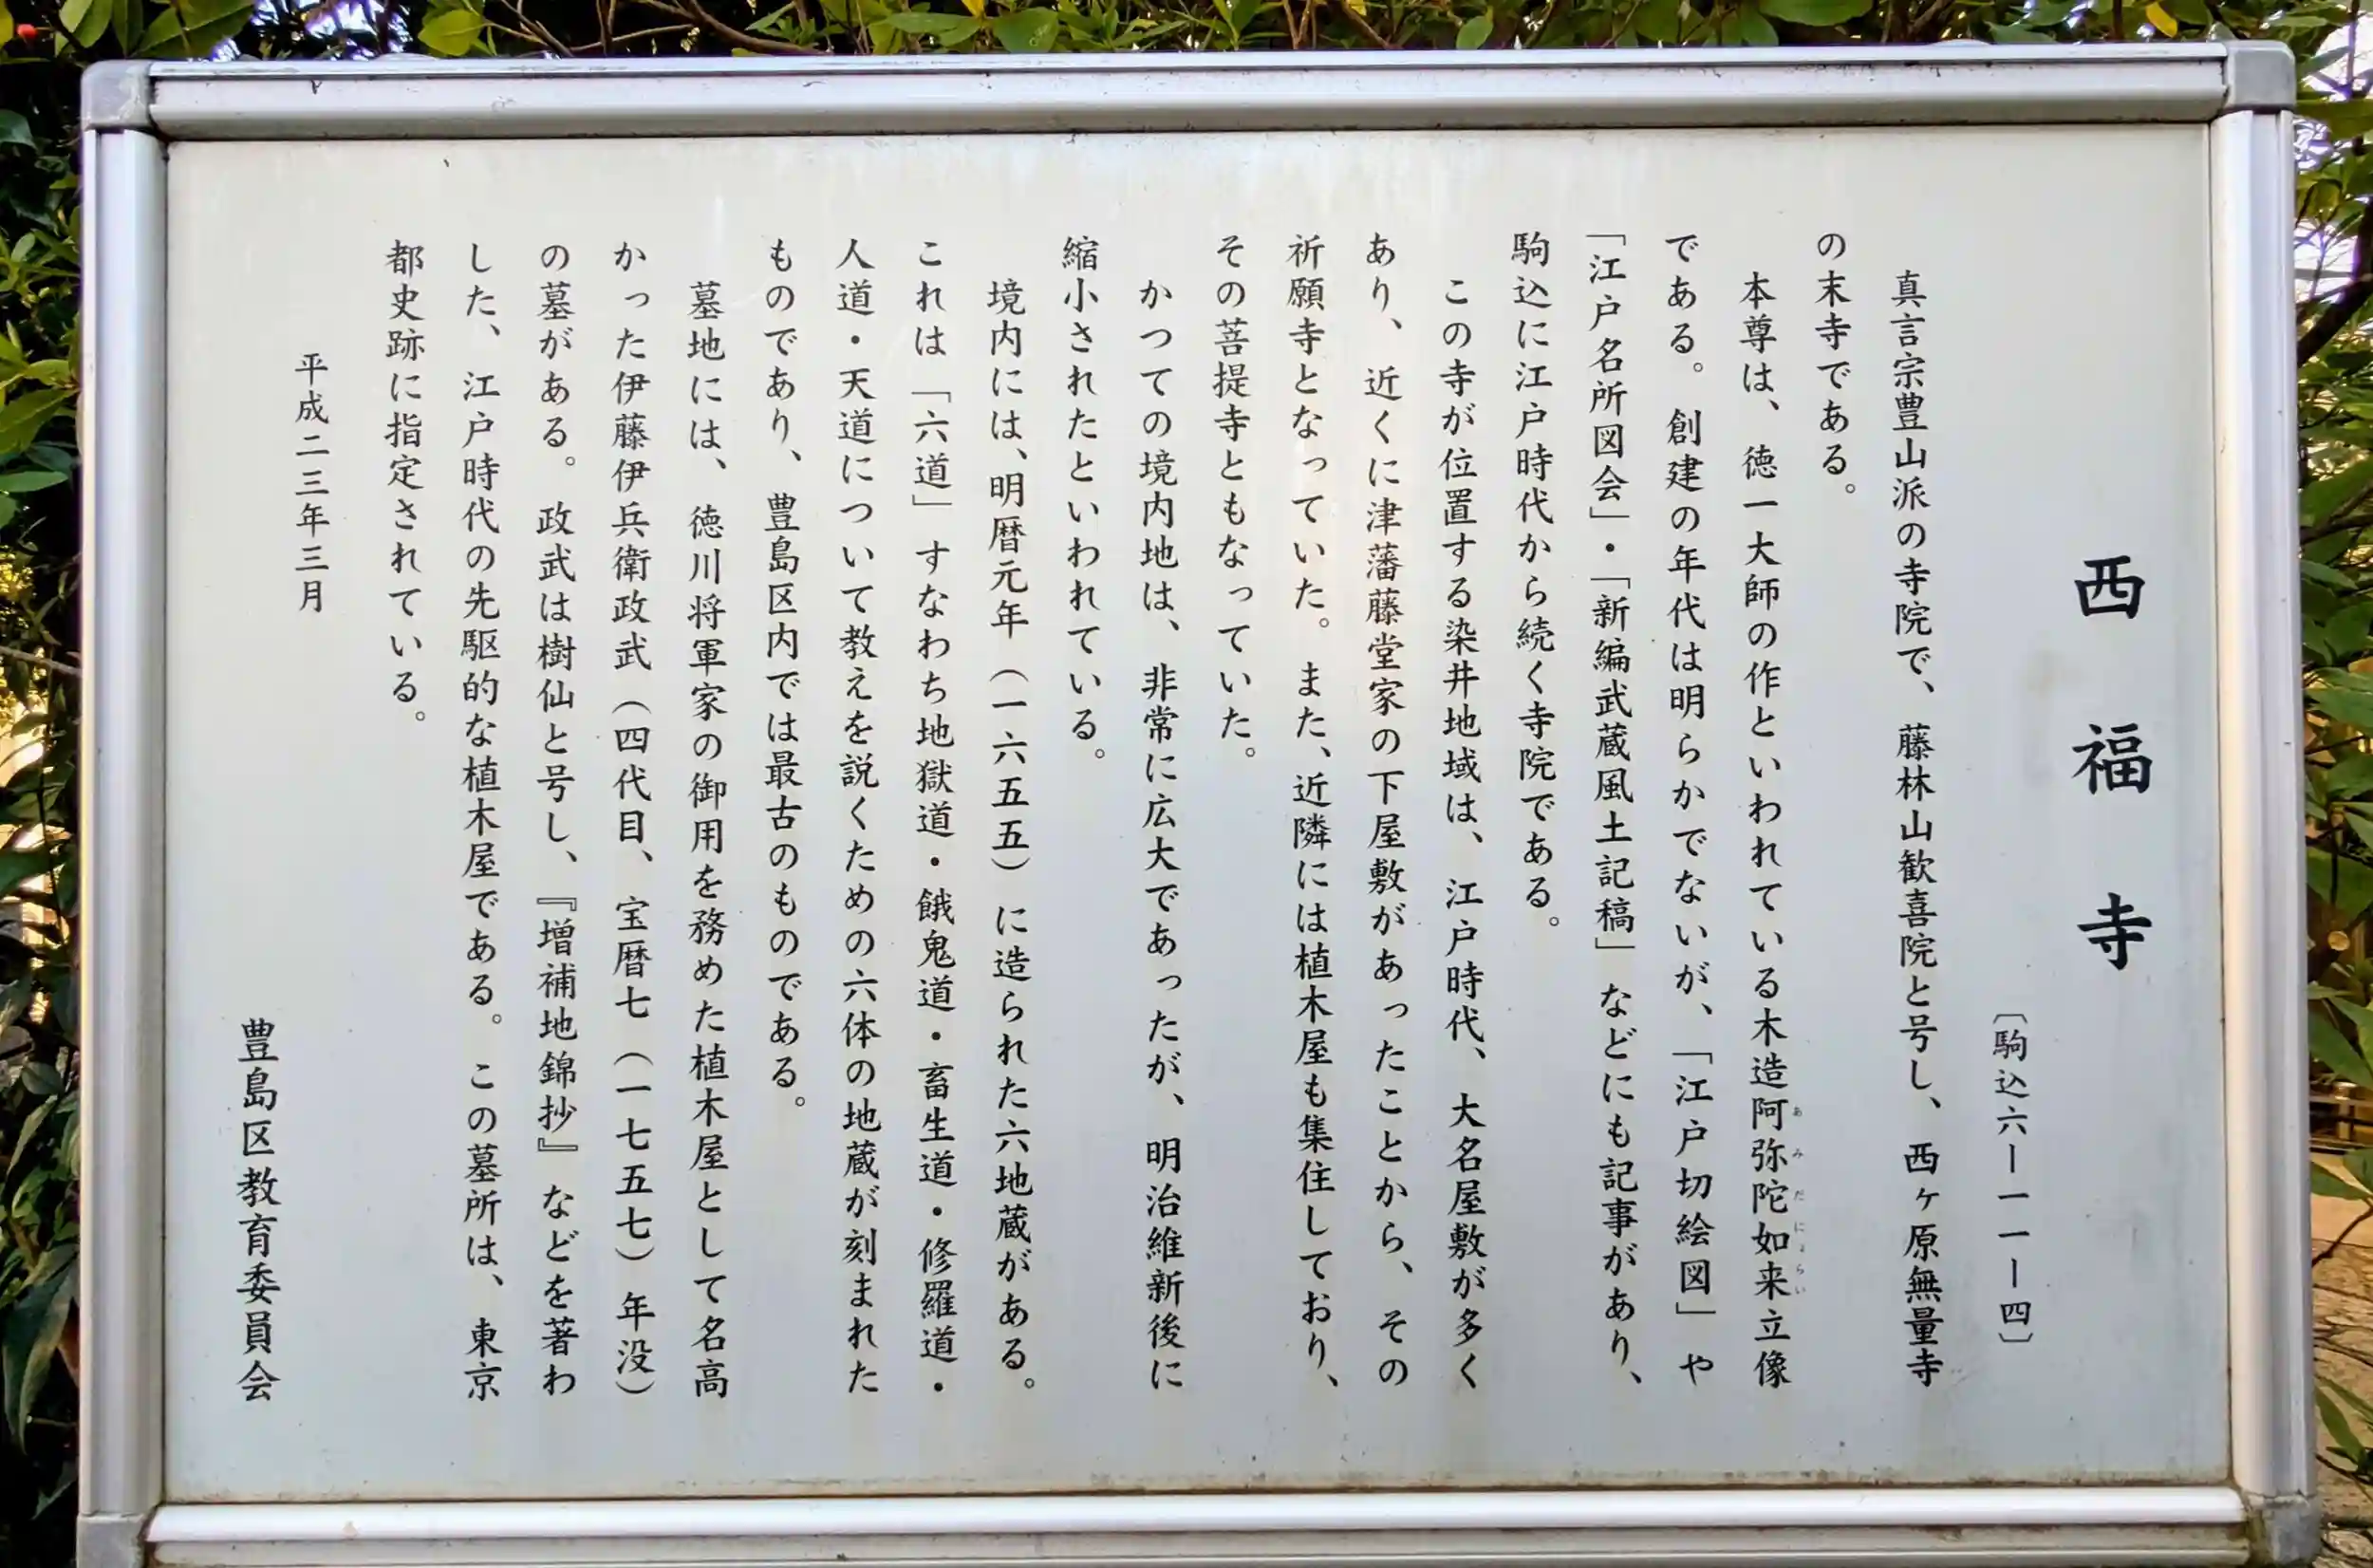 西福寺
〔駒込六ー一一ー四〕
真言宗豊山派の寺院で、藤林山歓喜院と号し、西ヶ原無量寺
の末寺である。
本尊は、徳一大師の作といわれている木造阿弥陀如来立像
である。創建の年代は明らかでないが、「江戸切絵図」や
「江戸名所図会」・「新編武蔵風土記稿」などにも記事があり、
駒込に江戸時代から続く寺院である。
この寺が位置する染井地域は、江戸時代、大名屋敷が多く
あり、近くに津藩藤堂家の下屋敷があったことから、その
祈願寺となっていた。また、近隣には植木屋も集住しており、
その菩提寺ともなっていた。
かつての境内地は、非常に広大であったが、明治維新後に
縮小されたといわれている。
境内には、明暦元年（一六五五）に造られた六地蔵がある。
これは「六道」すなわち地獄道・餓鬼道・畜生道・修羅道・
人道・天道について教えを説くための六体の地蔵が刻まれた
ものであり、豊島区内では最古のものである。
墓地には、徳川将軍家の御用を務めた植木屋として名高
かった伊藤伊兵衛政武（四代目、宝暦七（一七五七）年没）
の墓がある。政武は樹仙と号し、『増補地錦抄』などを著わ
した、江戸時代の先駆的な植木屋である。この墓所は、東京
都史跡に指定されている。
平成二三年三月
豊島区教育委員会